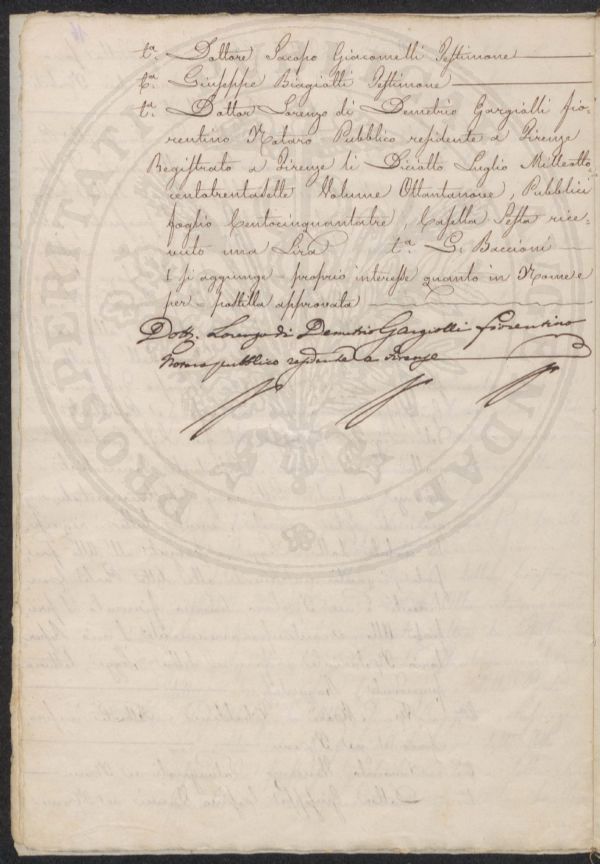 t.a Dottore Jacopo Giacomelli Testimone
t.a Giuseppe Biagiotti Testimone
t.a Dottor Lorenzo di Demetrio Gargiolli fio-
rentino Notaro Pubblico residente a Firenze
Registrato a Firenze li Diciotto Luglio Milleotto-
centotrentasette Volume Ottantanove, Pubblici
foglio Centocinquantatre, Casella Sesta rice-
vuto una Lira t.a G. Baccioni
I si aggiunge - proprio interesse quanto in Nome e
per - postilla approvata
Dott. Lorenzo di Demetrio Gargiolli fiorentino
Notaro pubblico residente a Firenze
PROSPERITATI